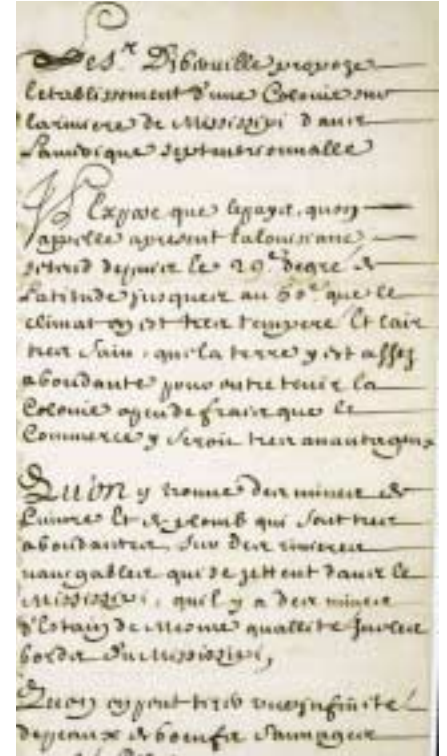 Le s.r Diberuille propoze
letablissement d'une Colonie sur
la riuiere de Mississipi dans
Lamerique septentrionnalle
Il Expose que le pays, quon
appelle apresent la louisiane
setend depuis le 29.e degré de
Latitude jusques au 60.e que le
climat en est tres temperé Et lair
tres sain, que la terre y est assez
abondante pour entretenir la
Colonie a peu de frais que le
Commerce y seroit tres auantageux
Qu'on y trouue des mines de
Cuiure Et de plomb qui sont tres
abondantes, sur des riuieres
nauigables qui se jettent dans le
Mississipi, quil y a des mines
d'Estain de mesme quallité sur les
bords du Mississipi,
Quon en peut tirer une infinité
de peaux de boeufs sauuages